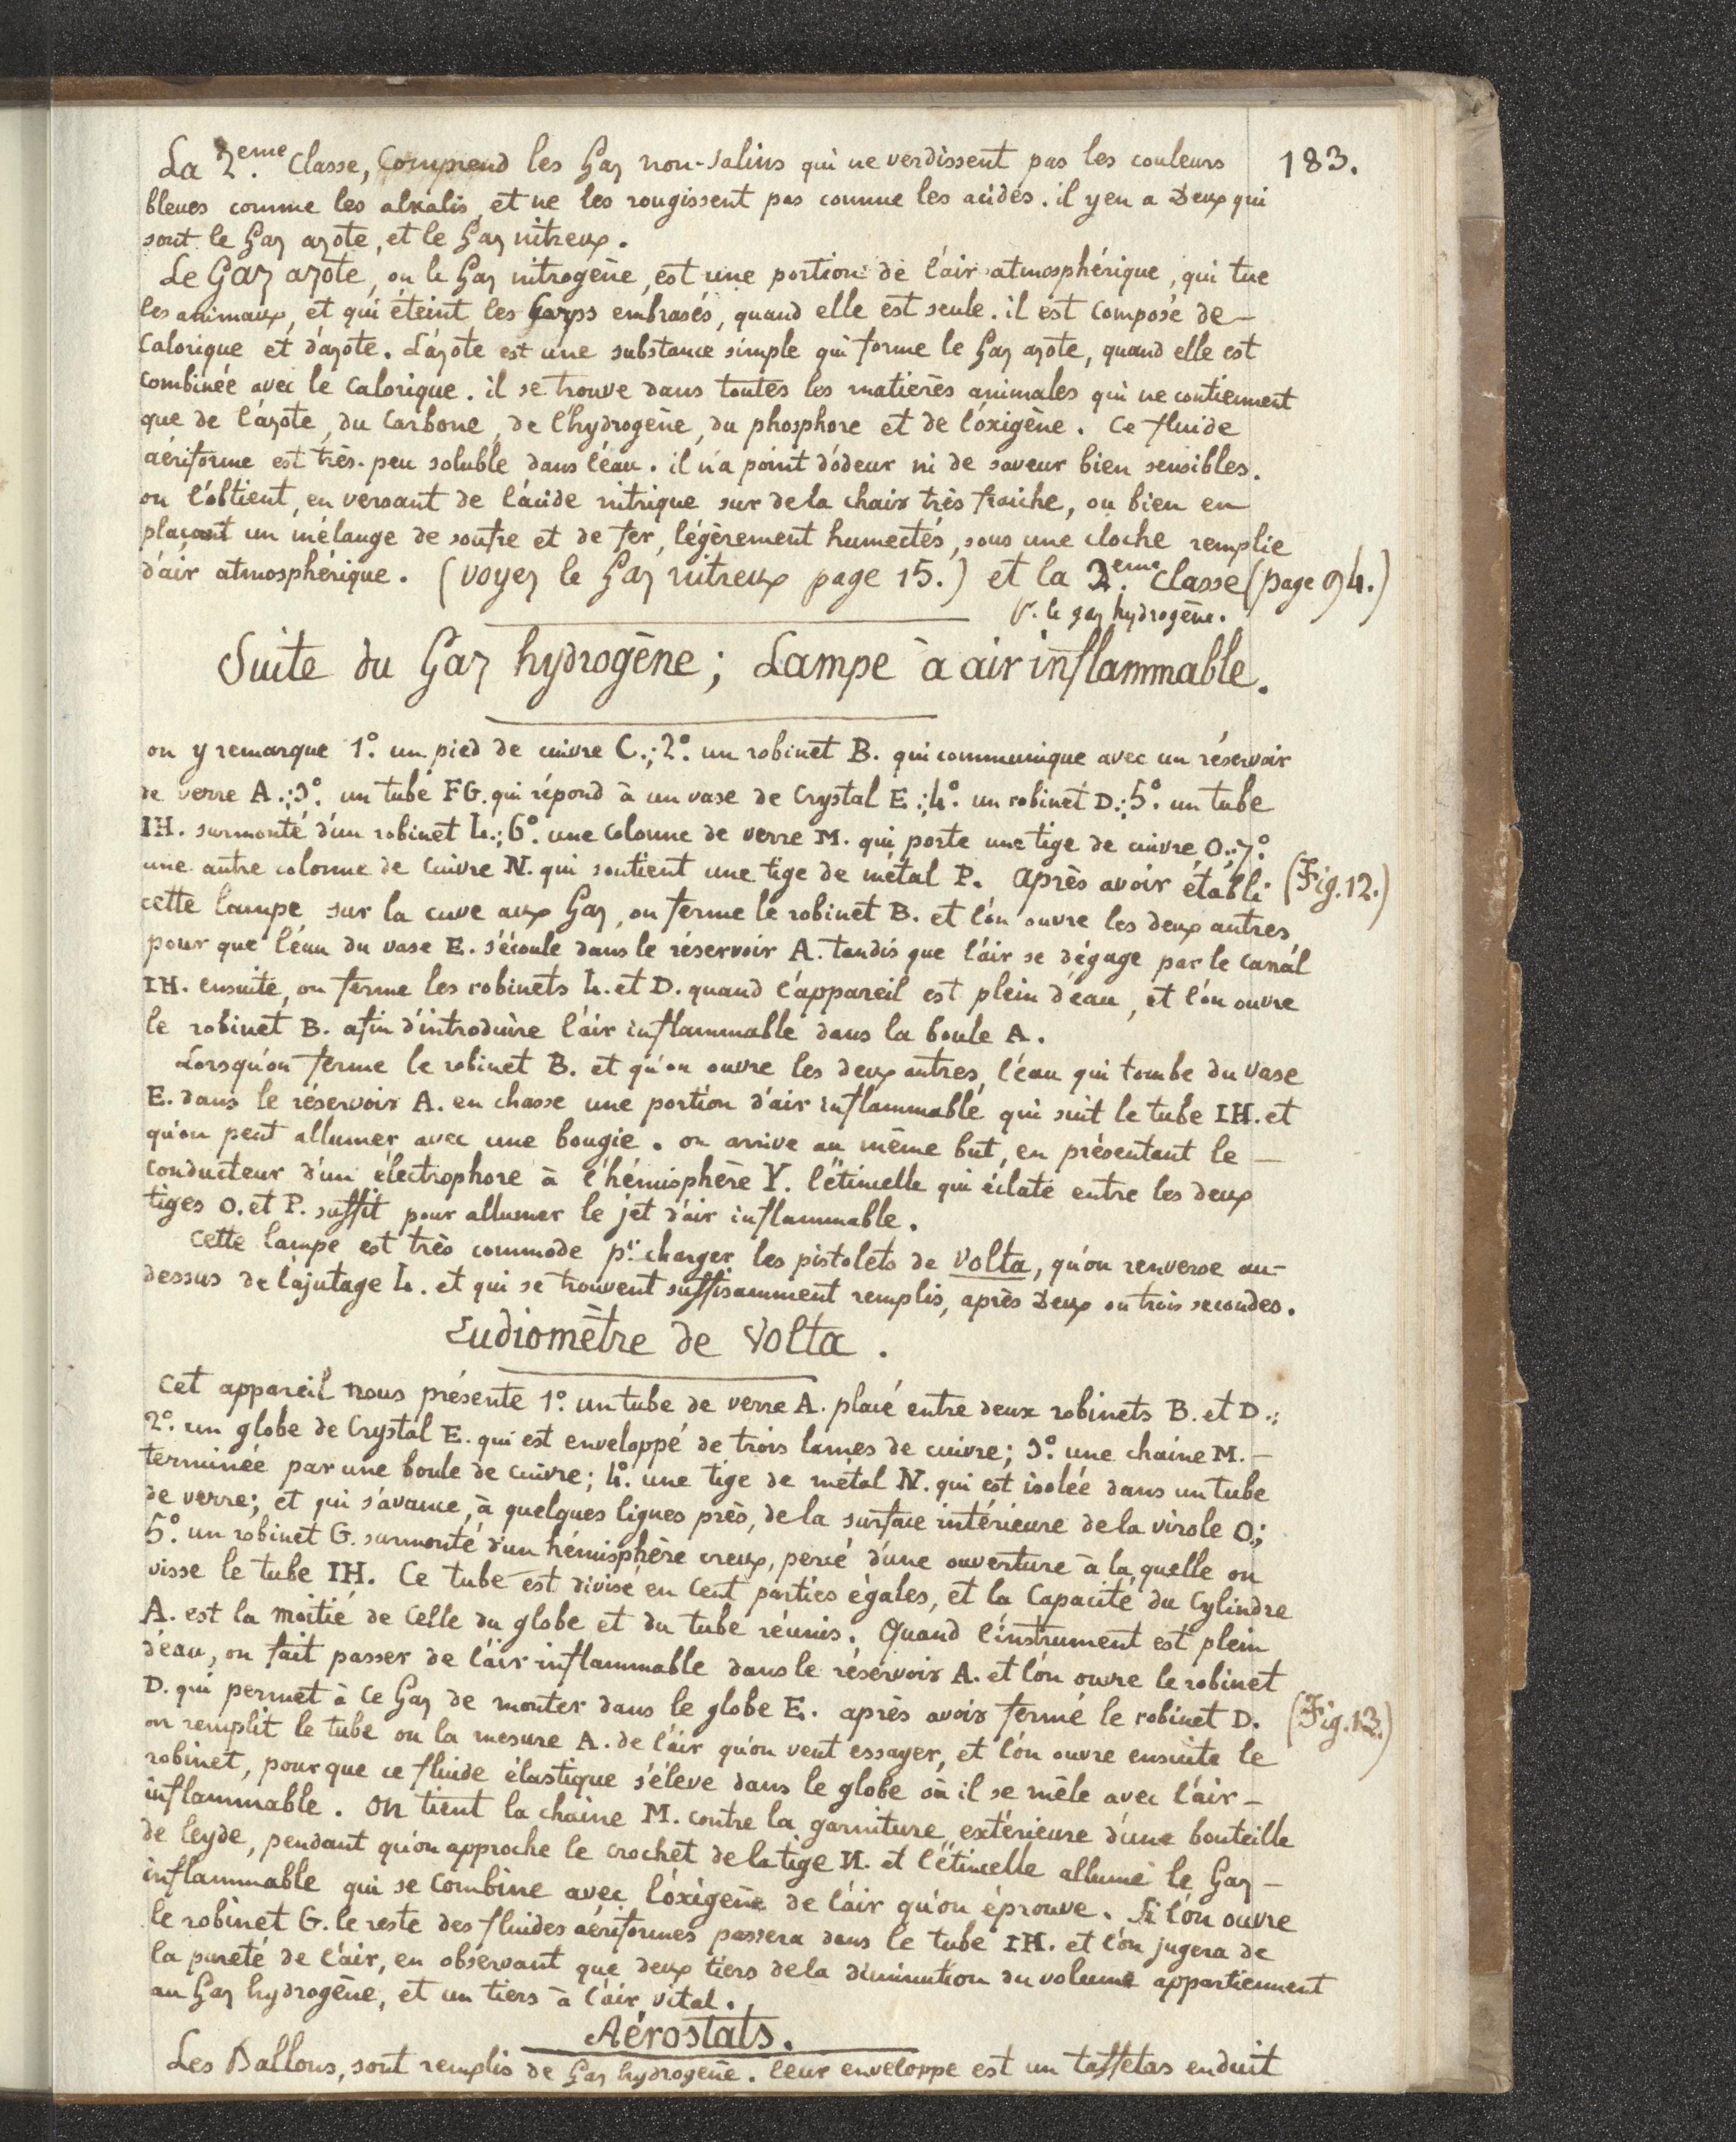 183.
La 2.eme Classe, Comprend les Gaz non-salins qui ne verdissent pas les couleurs
bleues comme les alkalis, et ne les rougissent pas comme les acides. il y en a Deux qui
sont le Gaz azote, et le Gaz nitreux.
Le Gaz azote, ou le Gaz nitrogène, est une portion de l'air atmosphérique, qui tue
les animaux, et qui éteint les Corps embrasés, quand elle est seule. il est composé de —
Calorique et d'azote. L'azote est une substance simple qui forme le Gaz azote, quand elle est
Combinée avec le Calorique. il se trouve dans toutes les matières animales qui ne contiennent
que de l'azote, du Carbone, de l'hydrogène, du phosphore et de l'oxigène. Ce fluide
aériforme est très-peu soluble dans l'eau. il n'a point d'odeur ni de saveur bien sensibles.
on l'obtient, en versant de l'acide nitrique sur de la chair très fraiche, ou bien en
plaçant un mélange de soufre et de fer, légèrement humectés, sous une cloche remplie
d'air atmosphérique. (voyez le Gaz nitreux page 15.) et la 2.eme Classe (page 94.)
V. le gaz hydrogène.
Suite du Gaz hydrogène; Lampe à air inflammable.
on y remarque 1.° un pied de cuivre C.; 2.° un robinet B. qui communique avec un réservoir
de verre A.; 3.° un tube FG. qui répond à un vase de Crystal E; 4.° un robinet D.; 5.° un tube
IH. surmonté d'un robinet L.; 6.° une Colonne de verre M. qui porte une tige de cuivre O.; 7.°
une autre colonne de Cuivre N. qui soutient une tige de métal P. après avoir établi (Fig.12.)
cette lampe sur la cuve aux Gaz, on ferme le robinet B. et l'on ouvre les deux autres
pour que l'eau du vase E. s'écoule dans le réservoir A. tandis que l'air se dégage par le Canal
IH. ensuite, on ferme les robinets L. et D. quand l'appareil est plein d'eau, et l'on ouvre
le robinet B. afin d'introduire l'air inflammable dans la boule A.
Lorsqu'on ferme le robinet B. et qu'on ouvre les deux autres, l'eau qui tombe du vase
E. dans le réservoir A. en chasse une portion d'air inflammable qui suit le tube IH. et
qu'on peut allumer avec une bougie. on arrive au même but, en présentant le —
Conducteur d'un électrophore à l'hémisphère Y. l'étincelle qui éclate entre les deux
tiges O. et P. suffit pour allumer le jet d'air inflammable.
Cette lampe est très commode p.r charger les pistolets de Volta, qu'on renverse au-
dessus de l'ajutage L. et qui se trouvent suffisamment remplis, après Deux ou trois secondes.
Eudiomètre de Volta.
Cet appareil nous présente 1.° un tube de verre A. placé entre deux robinets B. et D.;
2.° un globe de Crystal E. qui est enveloppé de trois lames de cuivre; 3.° une chaine M. —
terminée par une boule de cuivre; 4.° une tige de métal N. qui est isolée dans un tube
de verre; et qui s'avance, à quelques lignes près, de la surface intérieure de la virole O;
5.° un robinet G. surmonté d'un hémisphère creux, percé d'une ouverture à la quelle on
visse le tube IH. Ce tube est divisé en Cent parties égales, et la Capacité du Cylindre
A. est la moitié de Celle du globe et du tube réunis. Quand l'instrument est plein
d'eau, on fait passer de l'air inflammable dans le réservoir A. et l'on ouvre le robinet
D. qui permet à Ce Gaz de monter dans le globe E. après avoir fermé le robinet D. (Fig.13.)
on remplit le tube ou la mesure A. de l'air qu'on veut essayer, et l'on ouvre ensuite le
robinet, pour que ce fluide élastique s'éleve dans le globe où il se mêle avec l'air —
inflammable. On tient la chaine M. contre la garniture extérieure d'une bouteille
de leyde, pendant qu'on approche le crochet de la tige N. et l'étincelle allume le Gaz —
inflammable qui se Combine avec l'oxigène de l'air qu'on éprouve. Si l'on ouvre
le robinet G. le reste des fluides aériformes passera dans le tube IH. et l'on jugera de
la pureté de l'air, en observant que deux tiers de la diminution du volume appartiennent
au Gaz hydrogène, et un tiers à l'air vital.
Aérostats.
Les Ballons, sont remplis de Gaz hydrogène. leur enveloppe est un taffetas enduit